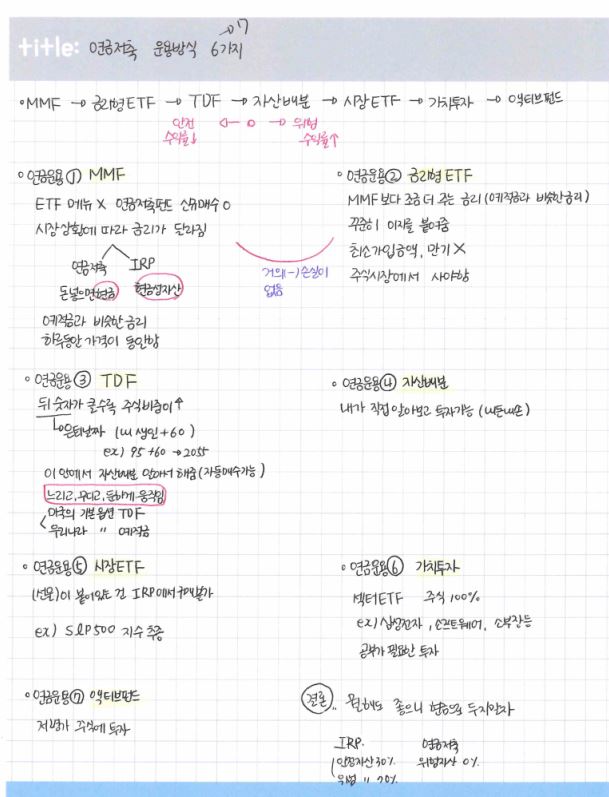 7
title: 연금저축 운용방식 6가지
•MMF → 금리형ETF → TDF → 자산배분 → 시장ETF → 가치투자 → 액티브펀드
안전 ← o → 위험
수익률↓ 수익률↑
• 연금운용① MMF
ETF 메뉴 X 연금저축펀드 신규매수 O
시장상황에 따라 금리가 달라짐
연금저축 IRP
돈넣으면현금 현금성자산
예적금과 비슷한 금리
하루동안 가격이 동일함
거의(-)손실이
없음
• 연금운용② 금리형ETF
MMF보다 조금 더 주는 금리(예적금과 비슷한금리)
꾸준히 이자를 붙여줌
최소가입금액, 만기X
주식시장에서 사야함
• 연금운용③ TDF
뒤 숫자가 클수록 주식비중이↑
은퇴날짜 (내 생일+60)
ex) 95+60 → 2055
이 안에서 자산배분 알아서 해줌(자동매수가능)
느리고, 무디고, 둔하게 움직임
미국의 기본옵션 TDF
우리나라 " 예적금
• 연금운용④ 자산배분
내가 직접알아보고 투자가능 (내돈내손)
• 연금운용⑤ 시장ETF
(선물)이 붙어있는 건 IRP에서 구매불가
ex) S&P500 지수 추종
• 연금운용⑥ 가치투자
섹터ETF 주식 100%
ex) 삼성전자, 소프트웨어, 소부장등
공부가 필요한 투자
• 연금운용⑦ 액티브펀드
저평가 주식에 투자
결론.. 뭔해도 좋으니 현금으로 두지말자
IRP. 연금저축
안전자산30% 위험자산 0%
위험 " 70%